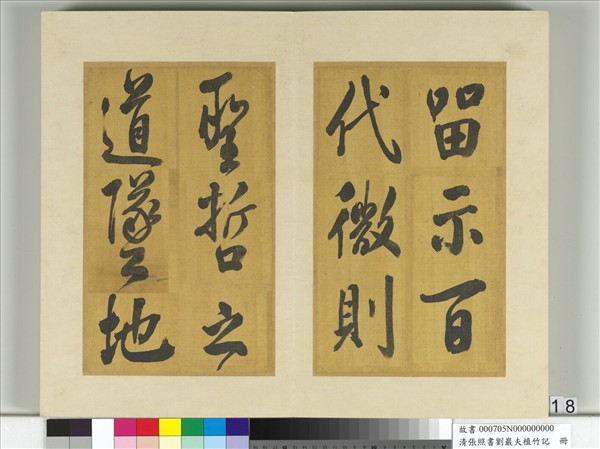 畱示百
代微則
聖哲之
道墜地
18
故書 000705N000000000
清張照書劉巖夫植竹記 冊